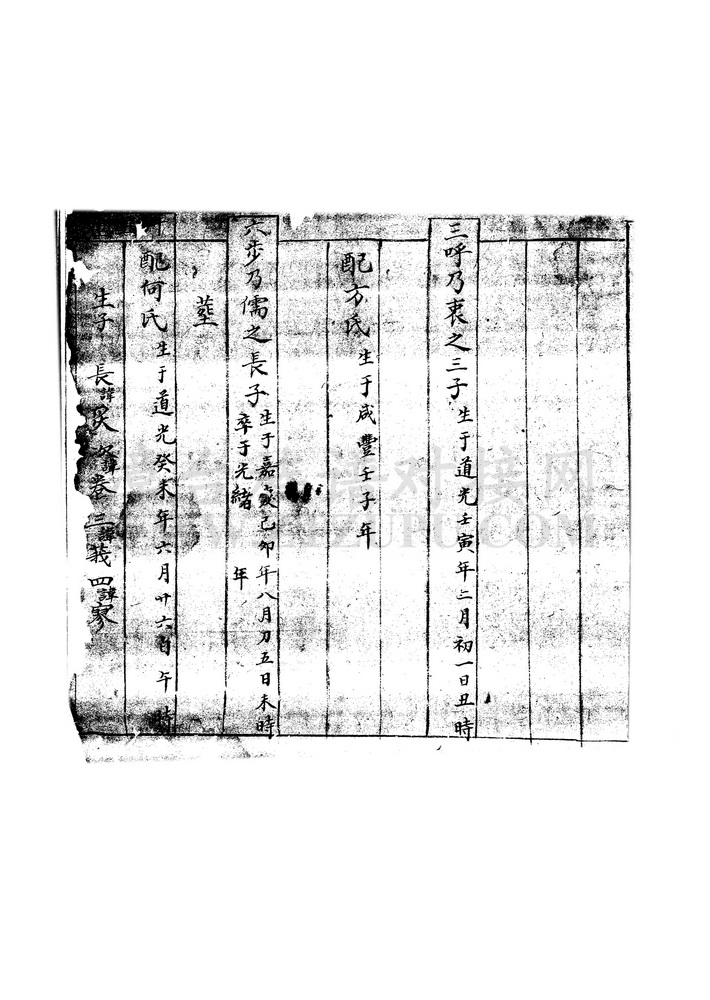 三呼乃衷之三子 生于道光壬寅年二月初一日丑時
配方氏 生于咸豐壬子年
六步乃儒之長子 生于嘉慶己卯年八月初五日未時
卒于光緒 年
塟
配何氏 生于道光癸未年六月廿六日午時
生子 長諱 次諱卷 三諱義 四諱